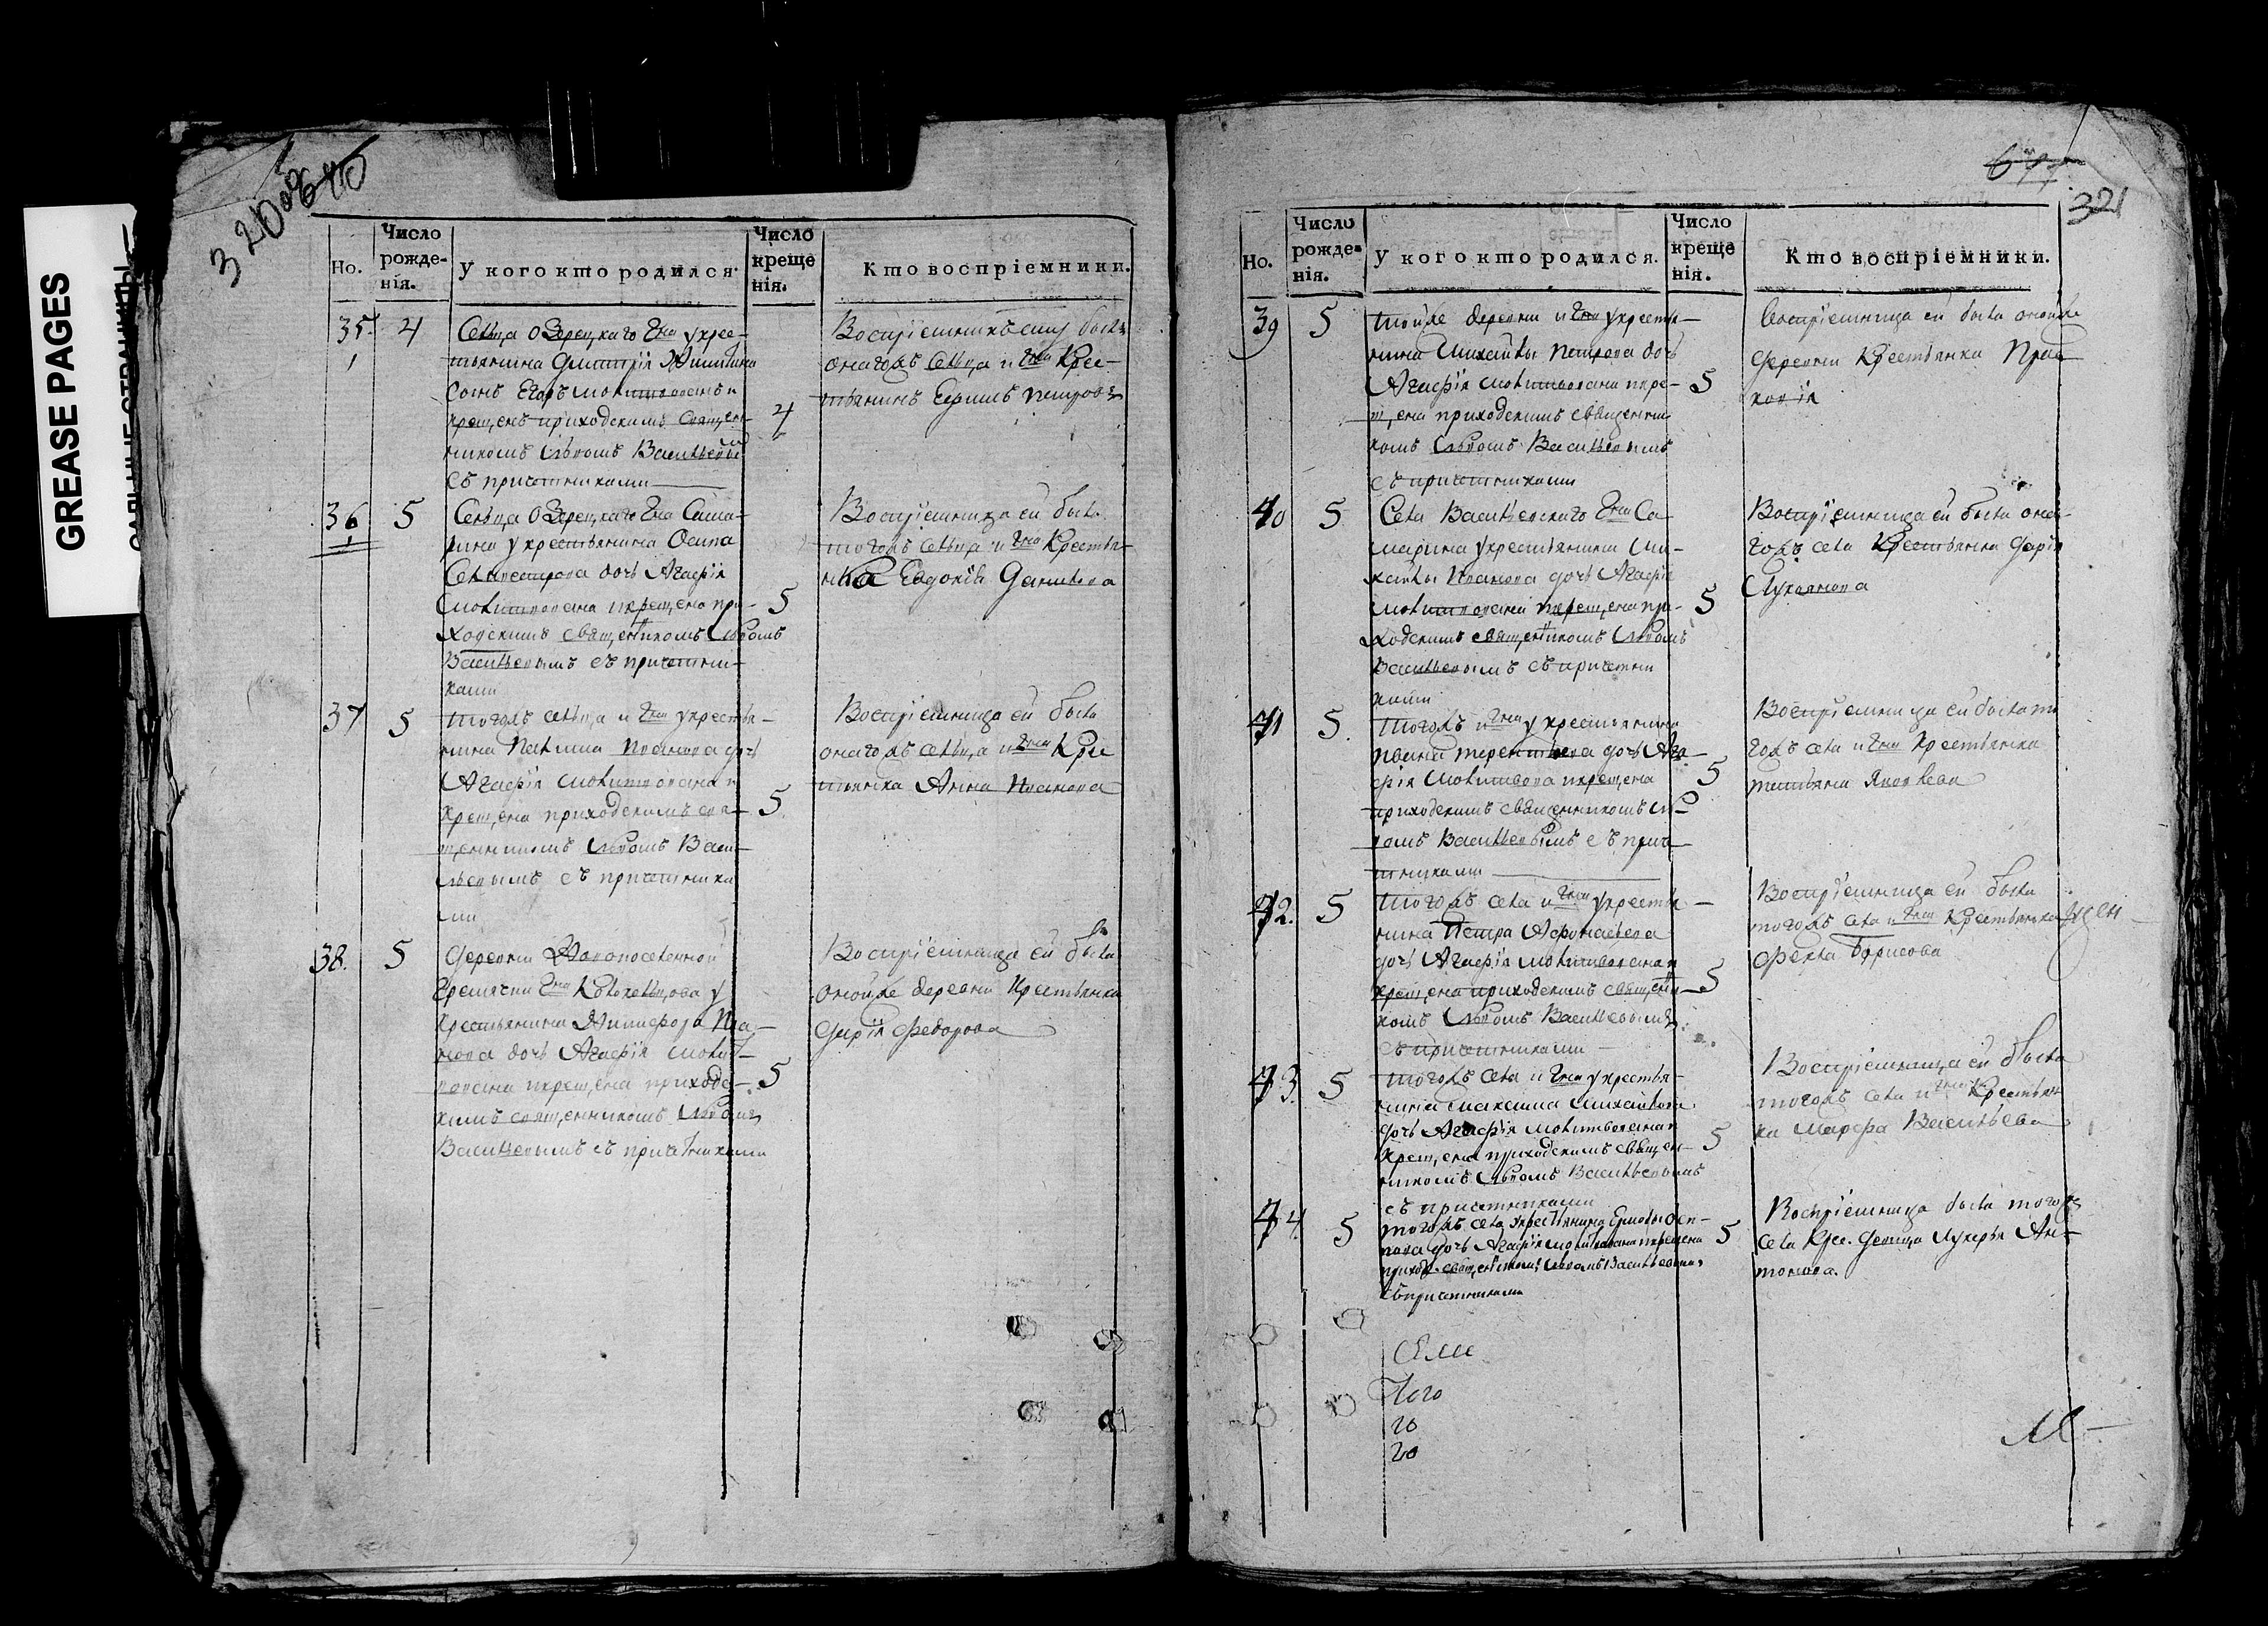 GREASE PAGES
320
Но.
Число рожденія.
У кого кто родился.
Число крещенія.
Кто воспріемники.
35. 4
Сельца Озерецкаго Гна у крес-
тьянина Дмитрія
Сынъ Егоръ молитвованъ и
крещенъ приходскимъ священ-
никомъ Львомъ Васильевым
съ причетниками
4
Воспріемникъ ему былъ
оногожъ сельца и Гна Крес-
тьянинъ Ефимъ Петровъ
36 5
Сельца Озерецкаго Гна Сама-
рина у крестьянина Осипа
Селиверстрова дочь Агафія
молитвована и крещена при-
ходскимъ священикомъ Львомъ
Васильевымъ съ причетни-
ками
5
Воспріемница ей была
тогожъ сельца и Гна Крестья-
нка Евдокія Данилова
37 5
Тогожъ сельца и Гна у крестья-
нина Иванова дочь
Агафія молитвована и
крещена приходскимъ свя-
щенникомъ Львомъ Васи-
льевымъ съ причетника
ми
5
Воспріемница ей была
оногожъ сельца и Гна Кре
стьянка Анна Иванова
38. 5
Деревни Новопоселенной
Гремячки Гна у
Крестьянина Никифора Ива-
нова дочь Агафія молит-
вована и крещена приходс-
кимъ священникомъ Львомъ
Васильевымъ съ причетниками
5
Воспріемница ей была
оной же деревни Крестьянка
Дарія Федорова
321
Но.
Число рожденія.
У кого кто родился.
Число крещенія.
Кто воспріемники.
39 5
Той же деревни и Гна у крестья-
нина Михайлы Петрова дочь
Агафія молитвована и кре-
щена приходскимъ священни
комъ Львомъ Васильевымъ
съ причетниками
5
Воспріемница ей была оной же
деревни Крестьянка Прас
ковія
40 5
Села Васильевскаго Гна Са
марина у крестьянина Ми-
хайлы Иванова дочь Агафія
молитвована и крещена при-
ходскимъ священникомъ Львомъ
Васильевымъ съ причетни
ками
5
Воспріемница ей была оно-
гожъ села Крестьянка Дарія
Лукьянова
41 5.
Тогожъ и Гна у крестьянина
Ивана Терентьева дочь Ага-
фія молитвована и крещена
приходскимъ священникомъ Ль
вомъ Васильевымъ съ приче-
тниками
5
Воспріемница ей была то
гожъ села и Гна Крестьянка
Татьяна Яковлева
42. 5
Тогожъ села и Гна у крестья-
нина Петра Афонасьева
дочь Агафія молитвована и
крещена приходскимъ священи-
комъ Львомъ Васильевымъ
съ причетниками
5
Воспріемница ей была
тогожъ села и Гна Крестьянка
Фекла Борисова
43. 5
Тогожъ села и Гна у крестья-
нина Максима Михайлова
дочь Агафія молитвована и
крещена приходскимъ священ-
никомъ Львомъ Васильевымъ
съ причетниками
5
Воспріемница ей была
тогожъ села и Гна Крестьян
ка Марфа Васильева
44. 5
Тогожъ села у крестьянина Ермолы Оси-
пова дочь Агафія молитвована и крещена
приход. священикомъ Львомъ Васильевымъ
съ причетниками
5
Воспріемница была тогожъ
села Кре. девица Лукерья Ан-
тонова.